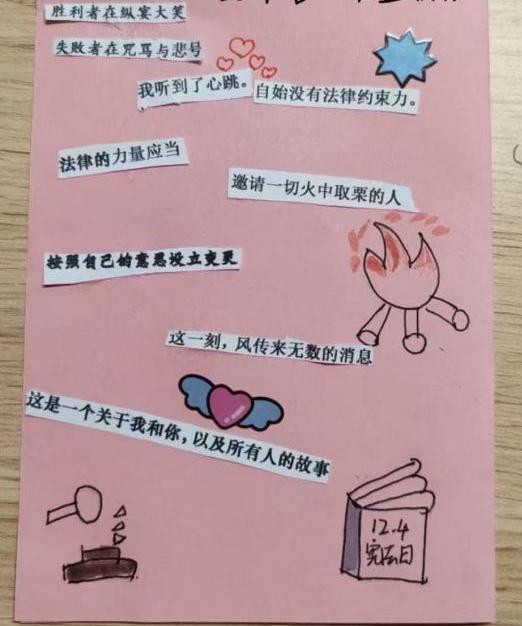 胜利者在纵宴大笑
失败者在咒骂与悲号
我听到了心跳。
自始没有法律约束力。
法律的力量应当
邀请一切火中取栗的人
按照自己的意思设立变更
这一刻，风传来无数的消息
这是一个关于我和你，以及所有人的故事
12.4
宪法日